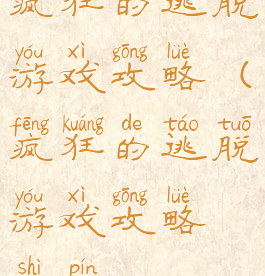 疯狂的逃脱
yóu xì gōng lüè
游戏攻略（
fēng kuáng de táo tuō
疯狂的逃脱
yóu xì gōng lüè
游戏攻略
shì pín